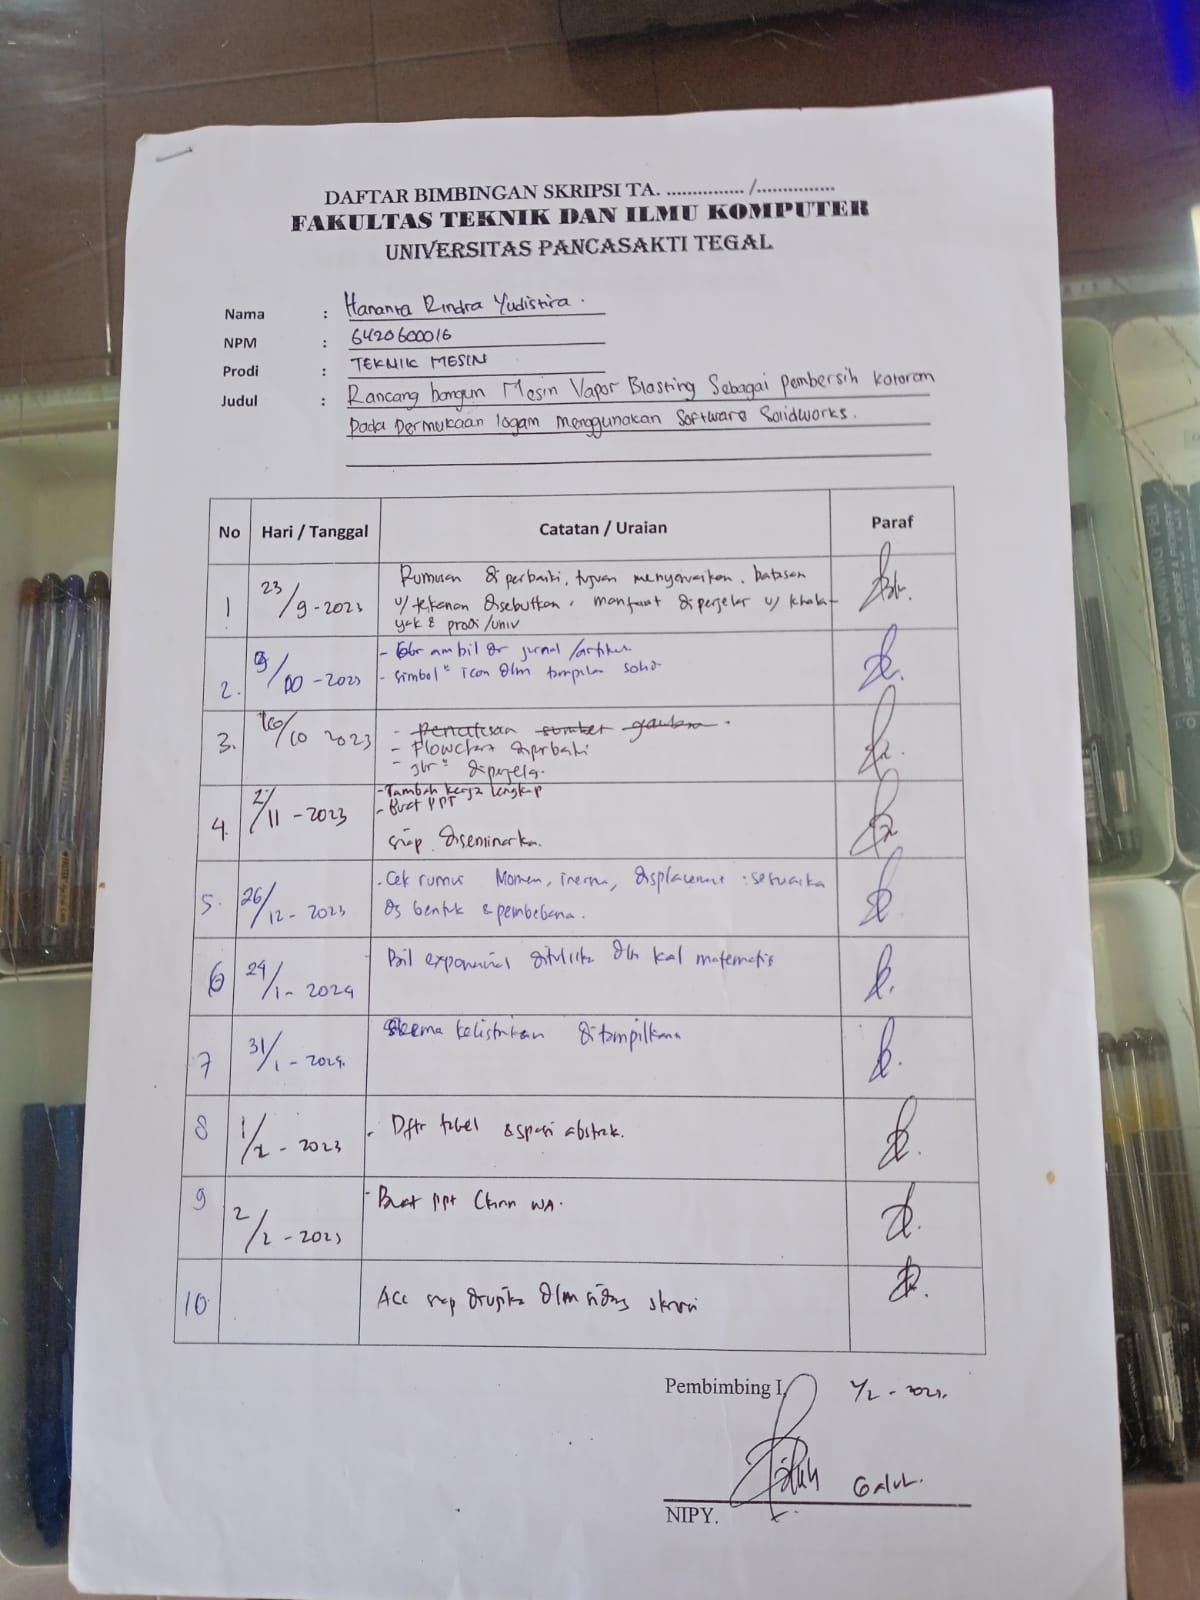 DAFTAR BIMBINGAN SKRIPSI TA. ............... /...............
FAKULTAS TEKNIK DAN ILMU KOMPUTER
UNIVERSITAS PANCASAKTI TEGAL
Nama : Hananta Rindra Yudistira.
NPM : 6420600016
Prodi : TEKNIK MESIN
Judul : Rancang bangun Mesin Vapor Blasting Sebagai pembersih kotoran
pada permukaan logam menggunakan Software Solidworks.
No Hari / Tanggal Catatan / Uraian Paraf
1 23/9-2023 Rumusan diperbaiki, tujuan menyesuaikan, batasan
u/ tekanan disebutkan, manfaat diperjelas u/
& prodi/univ
2. 9/10-2023 - Gbr ambil dr jurnal/artikel.
- simbol" icon dlm tampilan
3. 16/10 2023 - Penulisan sumber gambar.
- Flowchart diperbaiki
- gbr" diperjelas.
4. 2/11-2023 - Tambah kerja lengkap
- Buat PPT
siap diseminarkan.
5. 26/12-2023 . Cek rumus Momen, inersia, displacement : sesuaikan
dg bentuk & pembebanan.
6 29/1-2024 Bil exponensial ditulis dlm kal matematis
7 31/1-2024. Skema kelistrikan ditampilkan
8 1/2-2023 - Dftr tabel & spasi abstrak.
9 2/2-2023 - Buat ppt Kirim WA.
10 Acc siap diujikan dlm sidang skripsi
Pembimbing I,
Galuh.
NIPY.
DRAWING PEN